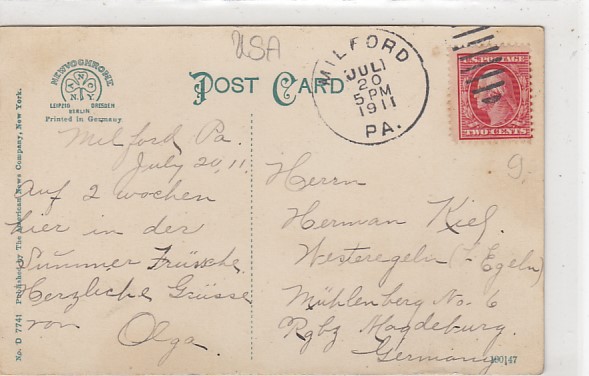 USA
NEWVOCHROME
A N C O
N.Y.
LEIPZIG DRESDEN
BERLIN
Printed in Germany
POST CARD
MILFORD
JUL
20
5 PM
1911
PA.
U.S. POSTAGE
TWO CENTS
9.
No. D 7741 Published by The American News Company, New York.
Milford, Pa.
July 20, 11.
Auf 2 wochen
hier in der
Summer
Herzliche Grüsse
von Olga.
Herrn
Herman Kiel.
Westeregeln (Egeln)
Mühlenberg No. 6
Rgbz Magdeburg.
Germany
190147